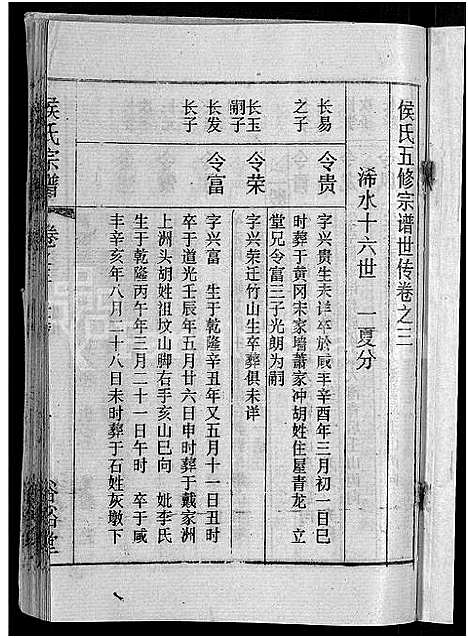 侯氏五修宗谱世传卷之三
浠水十六世 一夏分
长易之子 令贵
字兴贵生未详卒於咸丰辛酉年三月初一日巳
时葬于黄冈宋家塆萧家冲胡姓住屋青龙 立
堂兄令富三子光朗为嗣
长玉嗣子 令荣
字兴荣迁竹山生卒葬俱未详
长发长子 令富
字兴富 生于乾隆辛丑年又五月十一日丑时
卒于道光壬辰年五月廿六日申时葬于戴家洲
上洲头胡姓祖坟山脚右手亥山巳向 妣李氏
生于乾隆丙午年三月二十一日午时 卒于咸
丰辛亥年八月二十八日未时葬于石姓灰墩下
侯氏宗谱